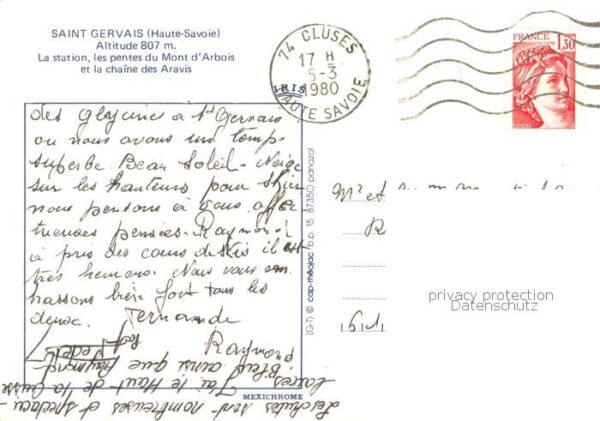 SAINT GERVAIS (Haute-Savoie)
Altitude 807 m.
La station, les pentes du Mont d'Arbois
et la chaîne des Aravis
74 CLUSES
17 H
5-3
1980
HAUTE SAVOIE
IRIS
FRANCE
1,30
POSTES
des Glycines à St Gervais
ou nous avons un temps
superbe Beau Soleil - Neige
sur les hauteurs pour skier
nous pensons à vous affec
tueuses pensées. Raymond
à pris des cours de skis il est
très heureux. Nous vous em
brassons bien fort tous les
deux. Fernande
Ray
Les chutes sont nombreuses et spectacu-
laires J'ai le Haut de la cuisse
Bleu ainsi que Raymond
(G-1) © cap-théojac b.p. 15 87350 panazol
Mr et
R
61
privacy protection
Datenschutz
MEXICHROME